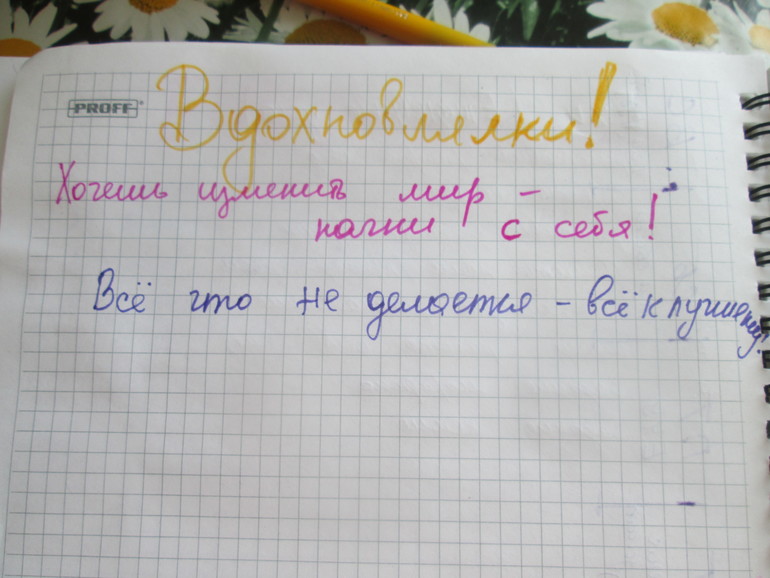 PROFF
Вдохновлялки!
Хочешь изменить мир -
начни с себя!
Всё что не делается - всё к лучшему!